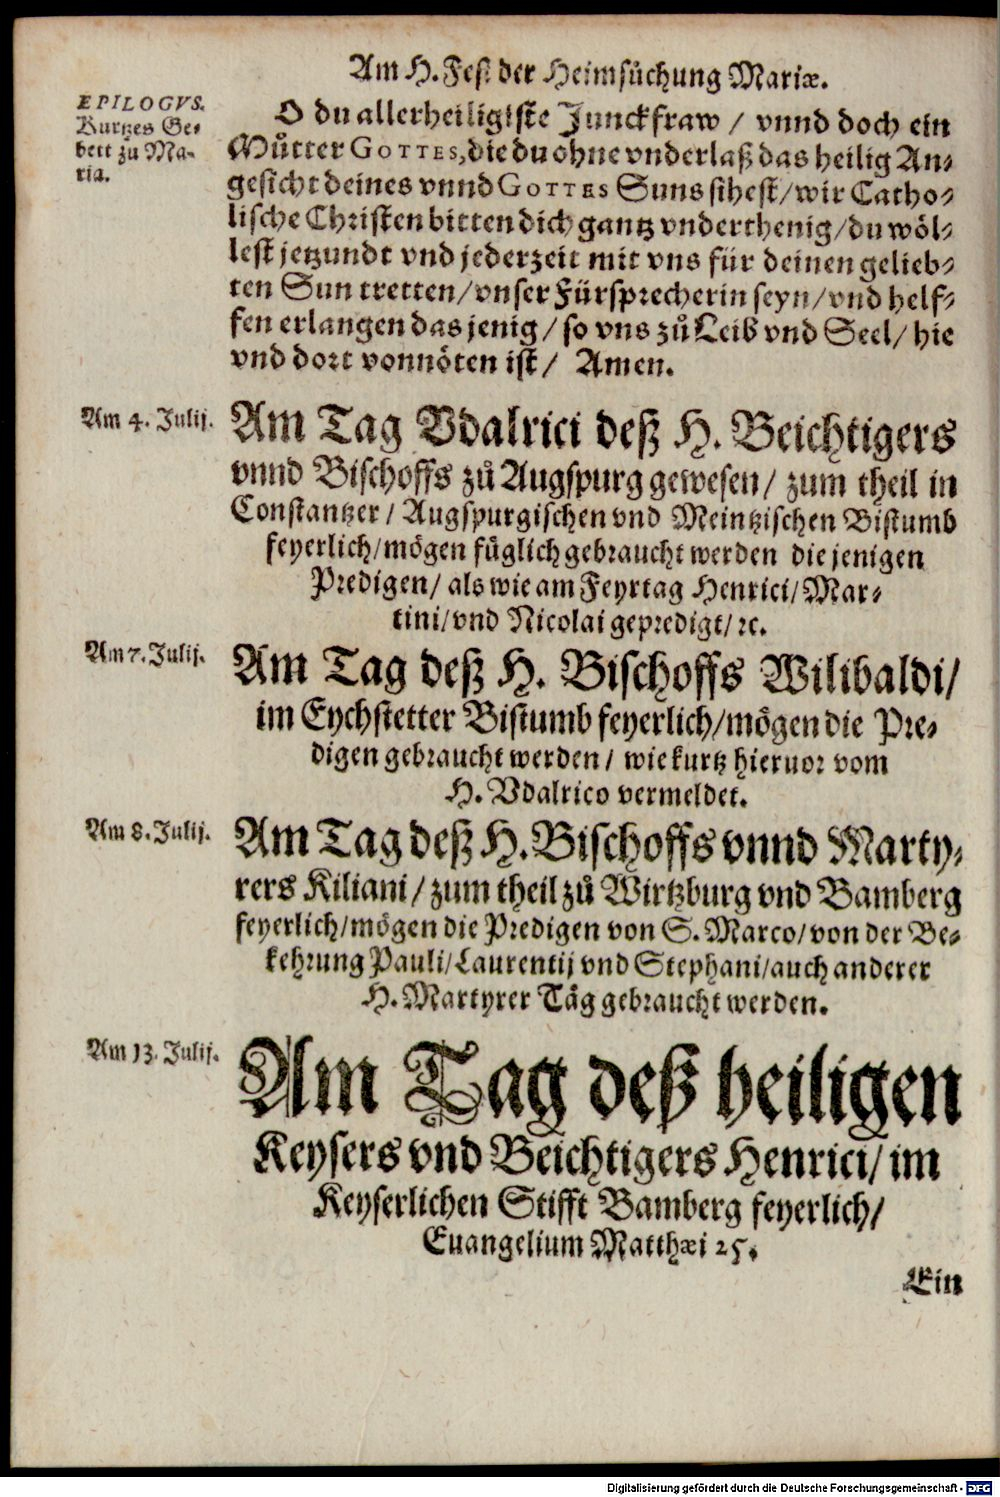 Am H. Fest der Heimsůchung Mariæ.
EPILOGVS.
Kurtzes Ge-
bett zu Ma-
ria.
O du allerheiligiste Junckfraw / vnnd doch ein
Můtter GOTTES, die du ohne vnderlaß das heilig An-
gesicht deines vnnd GOTTES Suns sihest / wir Catho-
lische Christen bitten dich gantz vnderthenig / du wöl-
lest jetzundt vnd jederzeit mit vns für deinen gelieb-
ten Sun tretten / vnser Fürsprecherin seyn / vnd helf-
fen erlangen das jenig / so vns zů Leib vnd Seel / hie
vnd dort vonnöten ist / Amen.
Am 4. Julij.
Am Tag Vdalrici deß H. Beichtigers
vnnd Bischoffs zů Augspurg gewesen / zum theil in
Constantzer / Augspurgischen vnd Meintzischen Bistumb
feyerlich / mögen füglich gebraucht werden die jenigen
Predigen / als wie am Feyrtag Henrici / Mar-
tini / vnd Nicolai gepredigt / ꝛc.
Am 7. Julij.
Am Tag deß H. Bischoffs Wilibaldi /
im Eychstetter Bistumb feyerlich / mögen die Pre-
digen gebraucht werden / wie kurtz hieruor vom
H. Vdalrico vermeldet.
Am 8. Julij.
Am Tag deß H. Bischoffs vnnd Marty-
rers Kiliani / zum theil zů Wirtzburg vnd Bamberg
feyerlich / mögen die Predigen von S. Marco / von der Be-
kehrung Pauli / Laurentij vnd Stephani / auch anderer
H. Martyrer Täg gebraucht werden.
Am 13. Julij.
Am Tag deß heiligen
Keysers vnd Beichtigers Henrici / im
Keyserlichen Stifft Bamberg feyerlich /
Euangelium Matthæi 25.
Ein
Digitalisierung gefördert durch die Deutsche Forschungsgemeinschaft - DFG